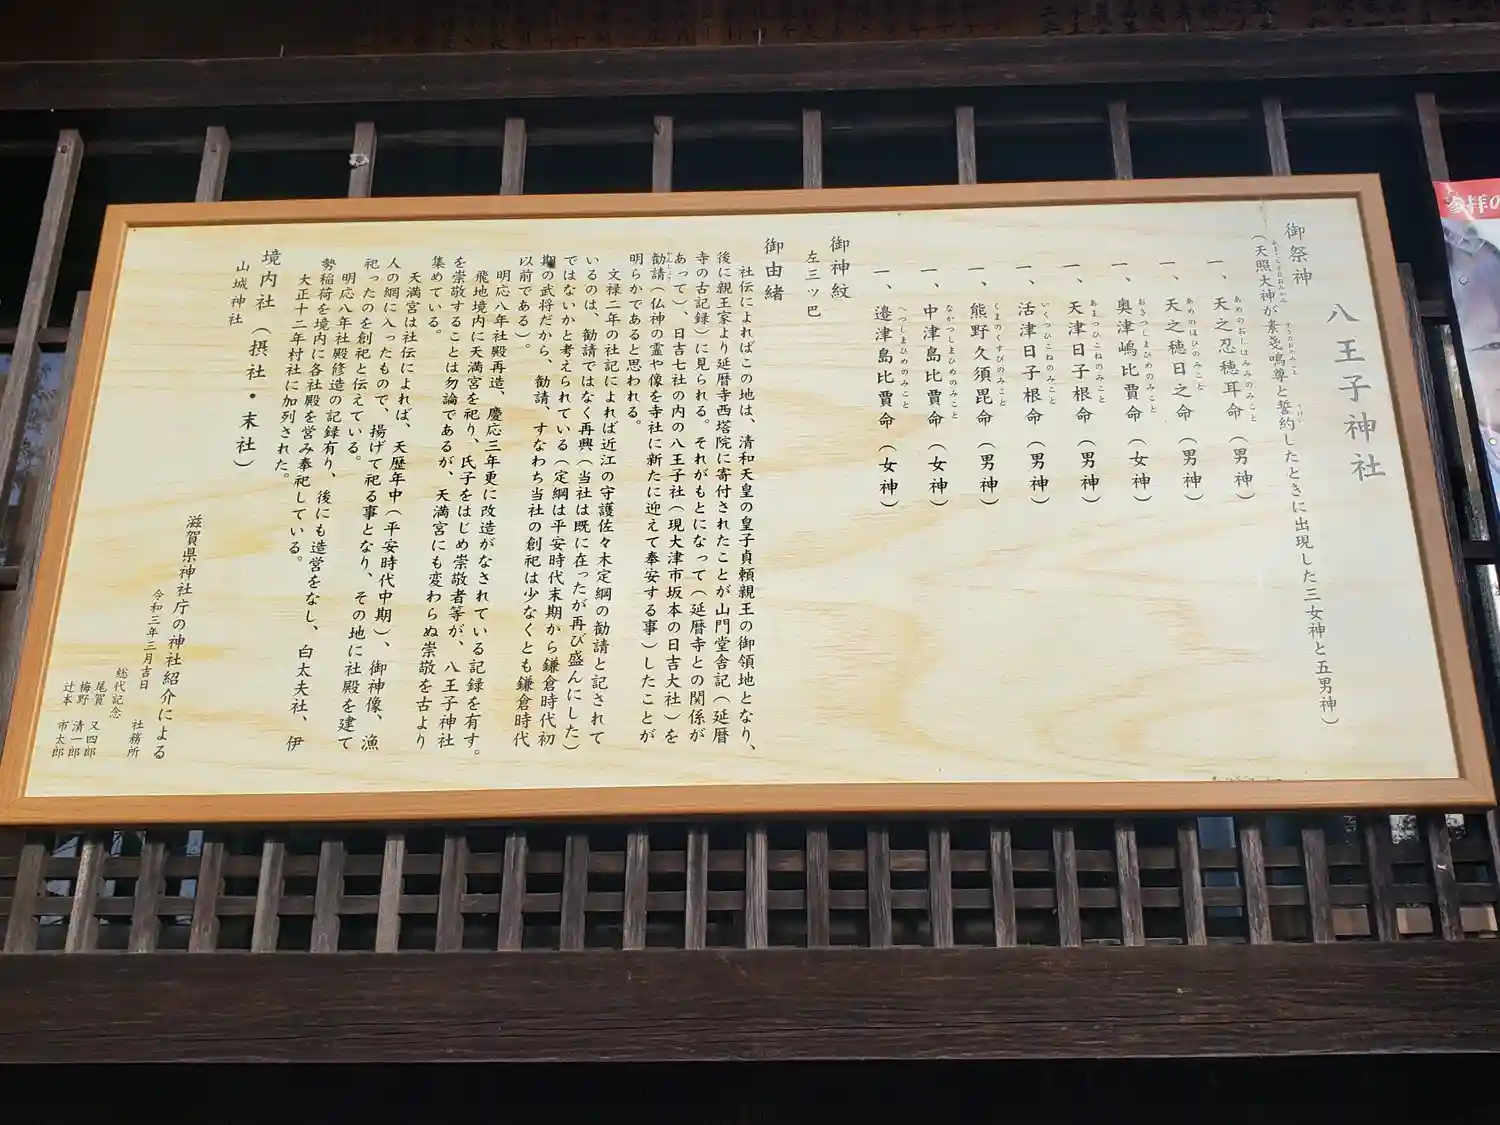 八王子神社
御祭神
(天照大神が素戔鳴尊と誓約したときに出現した三女神と五男神)
一、天之忍穂耳命(男神)
一、天之穂日之命(男神)
一、奥津嶋比賈命(女神)
一、天津日子根命(男神)
一、活津日子根命(男神)
一、熊野久須毘命(男神)
一、中津島比賈命(女神)
一、邉津島比賈命(女神)
御神紋
左三ッ巴
御由緒
社伝によればこの地は、清和天皇の皇子貞頼親王の御領地となり、
後に親王家より延暦寺西塔院に寄付されたことが山門堂舎記(延暦
寺の古記録)に見られる。それがもとになって(延暦寺との関係が
あって)、日吉七社の内の八王子社(現大津市坂本の日吉大社)を
勧請(仏神の霊や像を寺社に新たに迎えて奉安する事)したことが
明らかであると思われる。
文禄二年の社記によれば近江の守護佐々木定綱の勧請と記されて
いるのは、勧請ではなく再興(当社は既に在ったが再び盛んにした)
ではないかと考えられている(定綱は平安時代末期から鎌倉時代初
期の武将だから、勧請、すなわち当社の創祀は少なくとも鎌倉時代
以前である)。
明応八年社殿再造、慶応三年更に改造がなされている記録を有す。
飛地境内に天満宮を祀り、氏子をはじめ崇敬者等が、八王子神社
を崇敬することは勿論であるが、天満宮にも変わらぬ崇敬を古より
集めている。
天満宮は社伝によれば、天歴年中(平安時代中期)、御神像、漁
人の網に入ったもので、揚げて祀る事となり、その地に社殿を建て
祀ったのを創祀と伝えている。
明応八年社殿修造の記録有り、後にも造営をなし、白太夫社、伊
勢稲荷を境内に各社殿を営み奉祀している。
大正十二年村社に加列された。
境内社(摂社・末社)
山城神社
滋賀県神社庁の神社紹介による
令和三年三月吉日
社務所
総代記念
尾賀 又四郎
梅野 清一郎
辻本 市太郎
参拝の